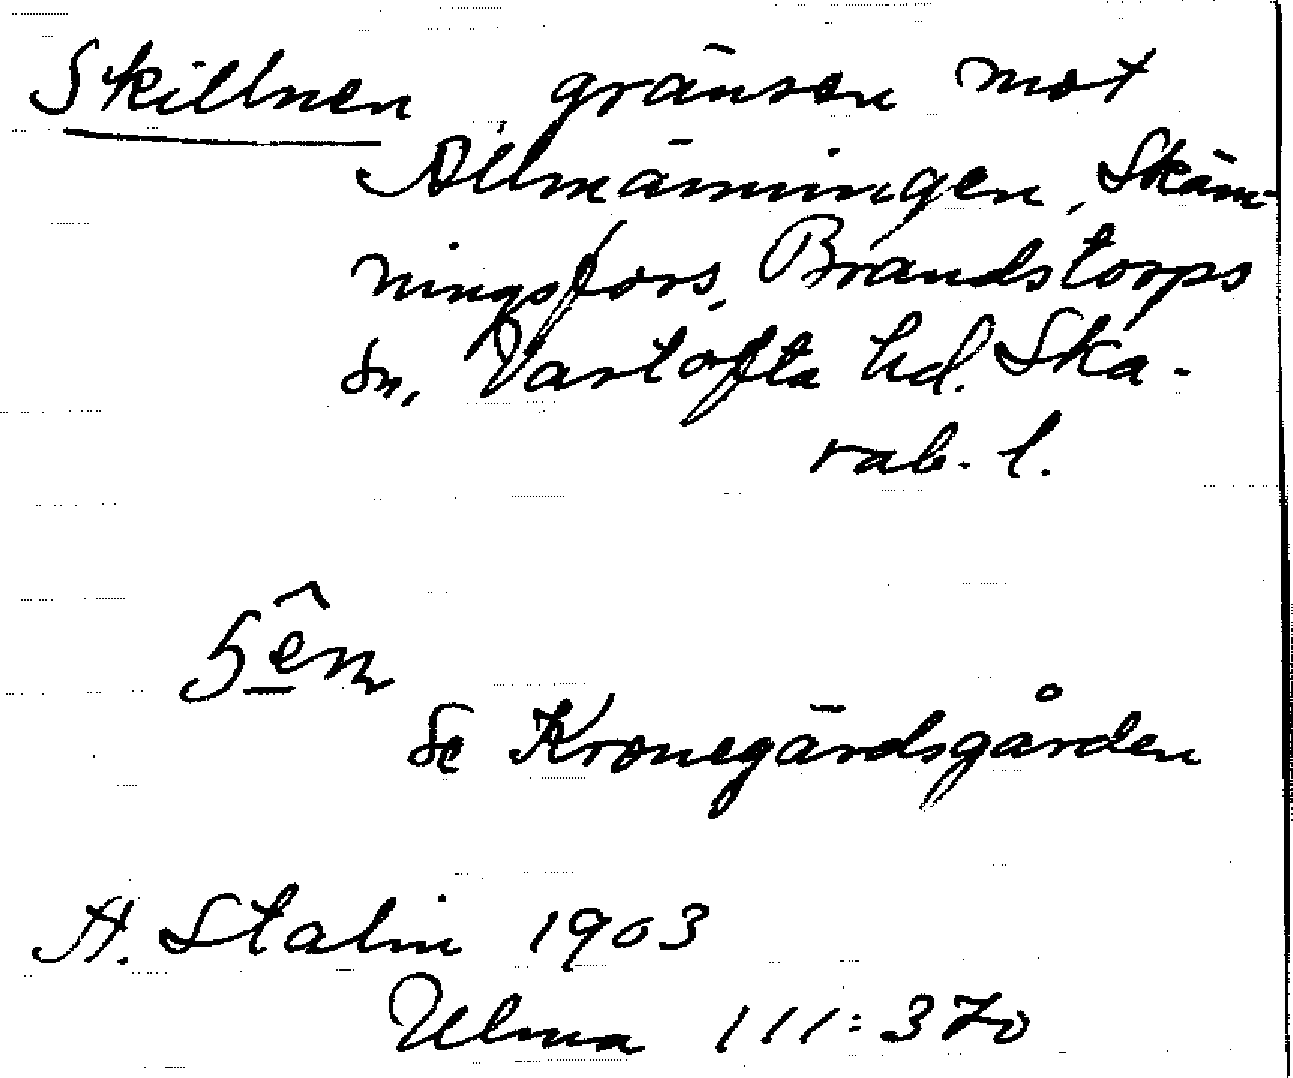 Skillnen, gränsen mot
Allmänningen, Skäm-
ningsfors, Brandstorps
sn, Vartofta hd. Ska-
rab. l.
Se Kronegårdsgården
A. Stalin 1903
Ulma 111:370